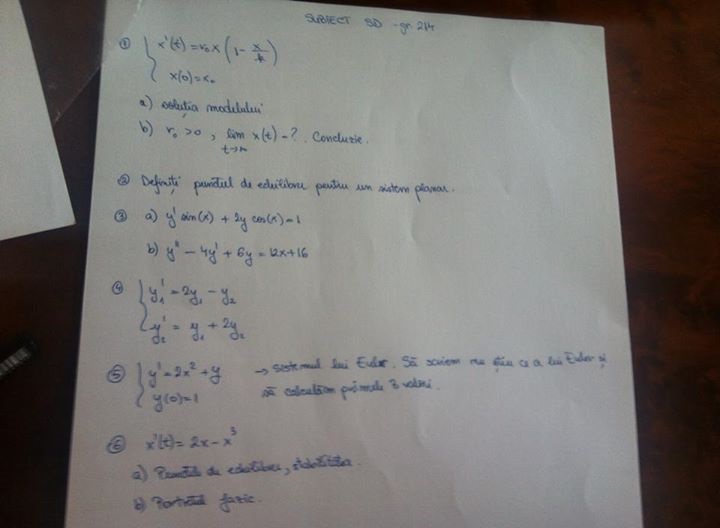 SUBIECT SD - gr. 214
① { x'(t) = r₀x (1 - x/k)
x(0) = x₀
a) soluția modelului
b) r₀ > 0, lim x(t) = ?. Concluzie.
t→∞
② Definiți punctul de echilibru pentru un sistem planar.
③ a) y' sin(x) + 2y cos(x) = 1
b) y'' - 4y' + 6y = 12x + 16
④ { y₁' = 2y₁ - y₂
y₂' = y₁ + 2y₂
⑤ { y' = 2x² + y → sistemul lui Euler. Să scriem nu știu ce a lui Euler și
y(0) = 1 să calculăm primele 3 valori.
⑥ x'(t) = 2x - x³
a) Punctele de echilibru, stabilitatea.
b) Portretul fazic.